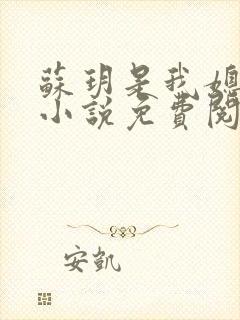 蘇玥是我媽
小說免費閱
安凱